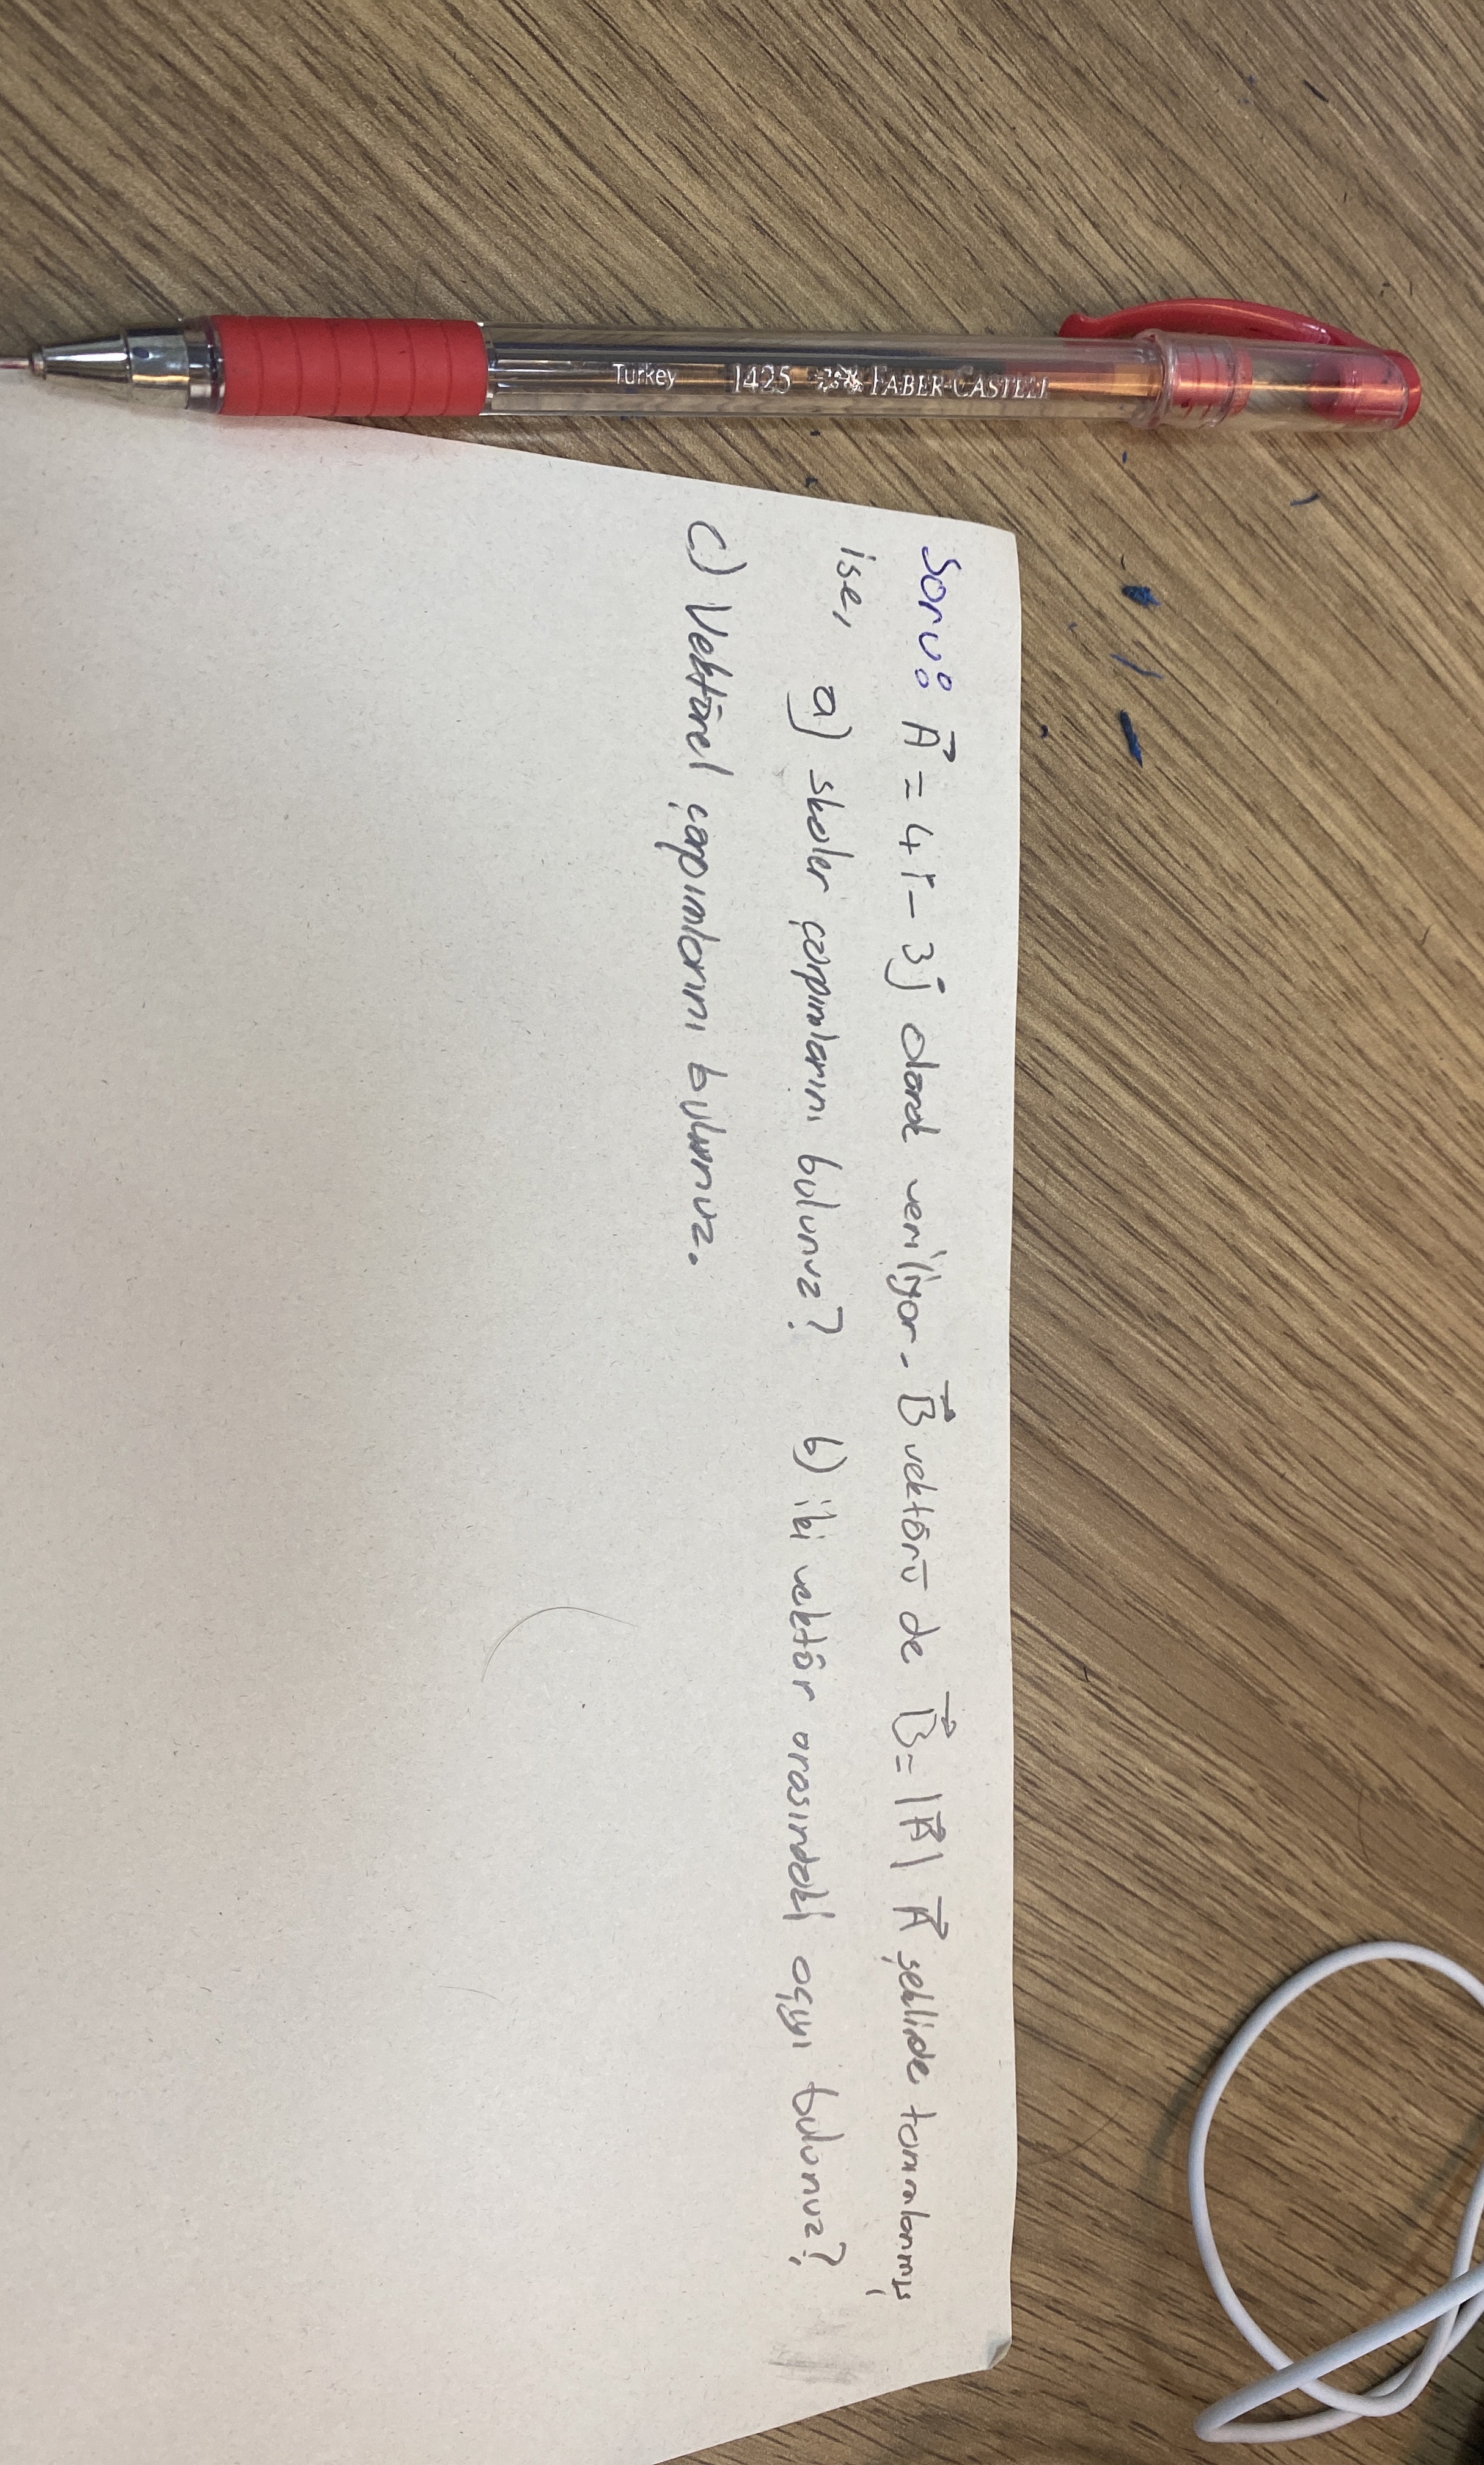 Turkey 1425 FABER-CASTELL
Soru: A⃗ = 4i - 3j olarak veriliyor. B⃗ vektörü de B⃗ = |A⃗| A⃗ şeklinde tanımlanmış
ise, a) skaler çarpımlarını bulunuz? b) iki vektör arasındaki açıyı bulunuz?
c) Vektörel çarpımlarını bulunuz.